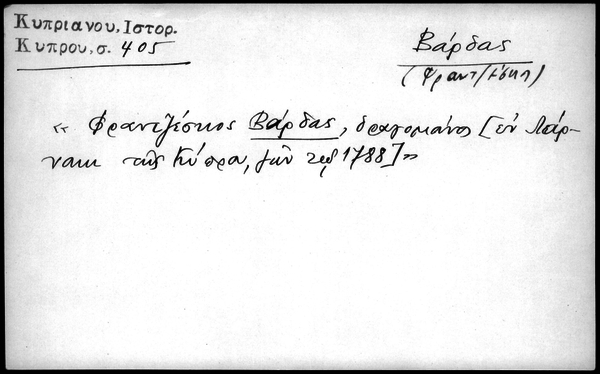 Κυπριανου, Ιστορ.
Κυπρου, σ. 405
Βάρδας
(Φραντζέσκος)
« Φραντζέσκος Βάρδας, δραγομάνος [ἐν Λάρ-
νακι τῆς Κύπρου, 1788]»